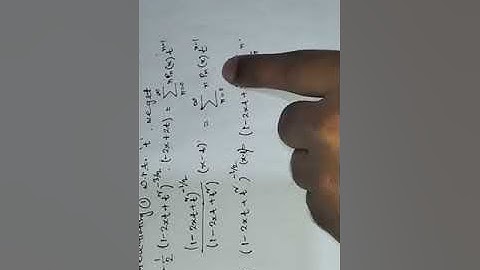 ① w.r.to 't', we get
-1/2 (1-2xt+t²)^{-3/2} . (-2x+2t) = ∑_{n=0}^{∞} n P_n(x) t^{n-1}
(1-2xt+t²)^{-1/2} / (1-2xt+t²) (x-t) = ∑_{n=0}^{∞} n P_n(x) t^{n-1}
(1-2xt+t²)^{-1/2} (x-t) = (1-2xt+